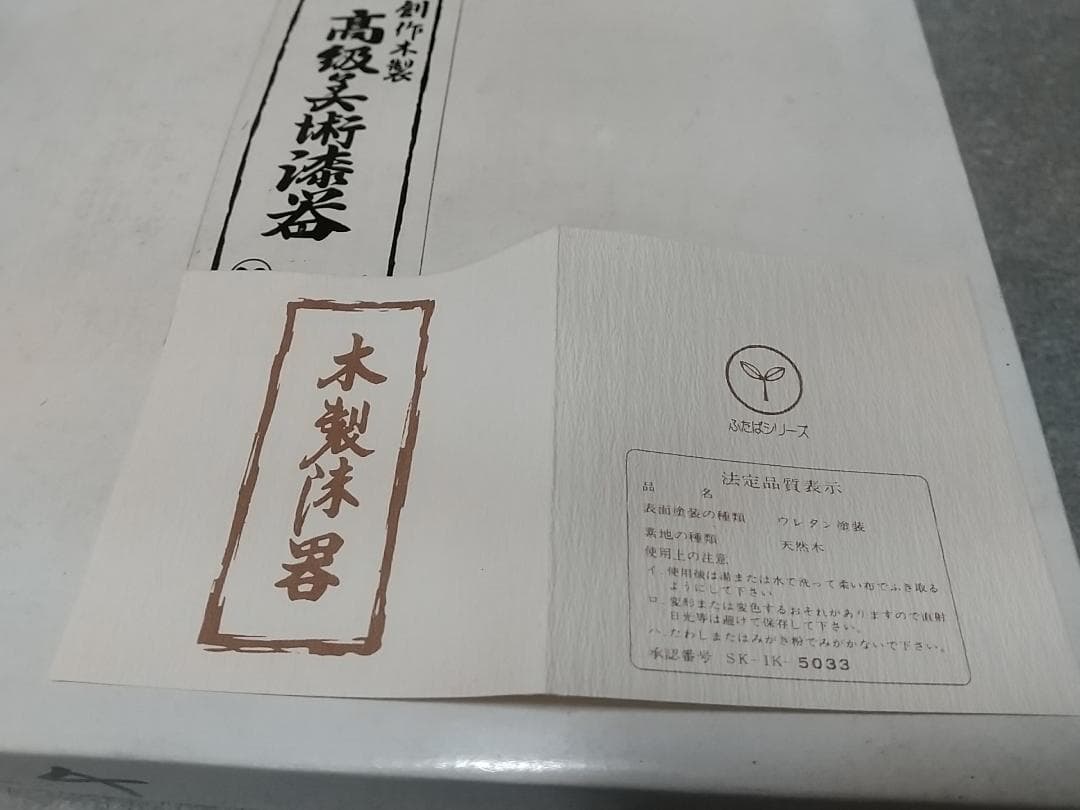 創作木製
高級美術漆器
木製漆器
ふたばシリーズ
法定品質表示
品名
表面塗装の種類 ウレタン塗装
素地の種類 天然木
使用上の注意
イ.使用後は湯または水で洗って柔い布でふき取る
ようにして下さい
ロ.変形または変色するおそれがありますので直射
日光等は避けて保存して下さい。
ハ.たわしまたはみがき粉でみがかないで下さい。
承認番号 SK-IK-5033